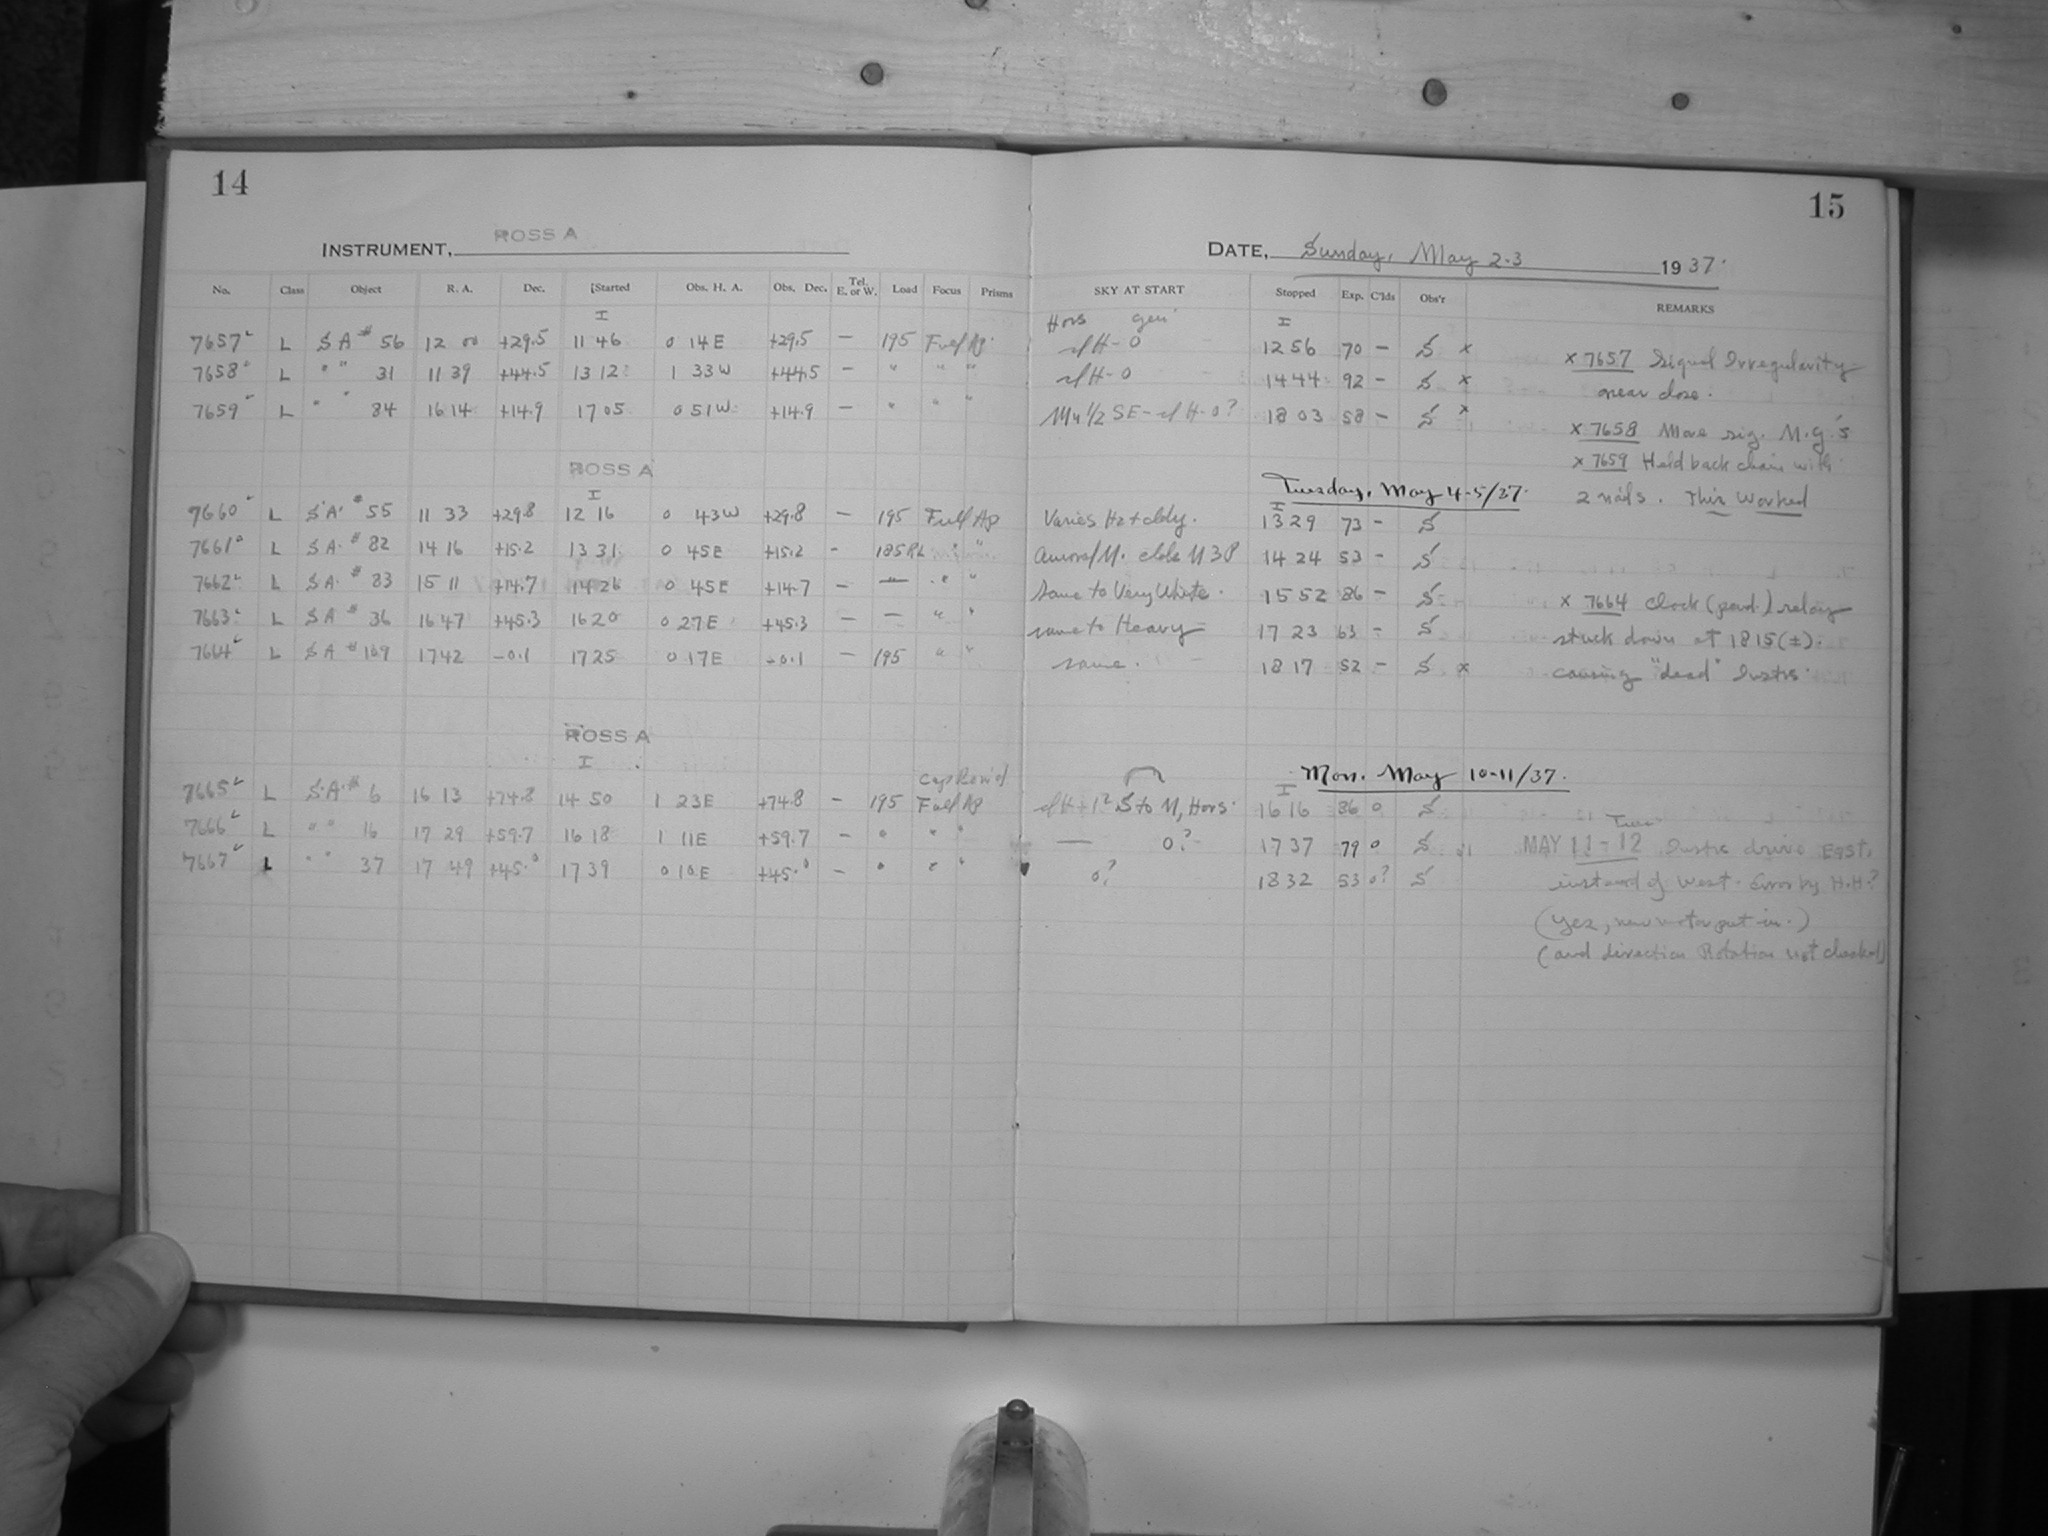 14
15
INSTRUMENT, ROSS A
DATE, Sunday, May 2-3 1937.
No. Class Object R. A. Dec. Started Obs. H. A. Obs. Dec. Tel. E. or W. Load Focus Prisms SKY AT START Stopped Exp. C'lds Obs'r REMARKS
I Hors gen I
7657 L S A # 56 12 00 +29.5 11 46 0 14 E +29.5 — 195 Full Ap. H- 0 12 56 70 — S x
x 7657 Signal Irregularity
7658 L " " 31 11 39 +44.5 13 12 1 33 W +44.5 — " " " H- 0 14 44 92 — S x
near close.
7659 L " " 84 16 14 +14.9 17 05 0 51 W +14.9 — " " " 1/2 SE - H-0? 18 03 58 — S x
x 7658 More sig. M.G.'s
x 7659 Held back chain with
2 nails. This Worked
ROSS A
I
Tuesday, May 4-5/37.
I
7660 L S A # 55 11 33 +29.8 12 16 0 43 W +29.8 — 195 Full Ap Varies Hz + cldy. 13 29 73 — S
7661 L S A. # 82 14 16 +15.2 13 31 0 45 E +15.2 - 185 " " 14 24 53 — S
7662 L S A. # 83 15 11 +14.7 14 26 0 45 E +14.7 — — " " Same to Very White. 15 52 86 — S
7663 L S A # 36 16 47 +45.3 16 20 0 27 E +45.3 — — " " same to Heavy 17 23 63 - S
7664 L S A # 109 17 42 -0.1 17 25 0 17 E -0.1 — 195 " " same. 18 17 52 — S x
x 7664 Clock (pend.) relay
stuck down at 1815(±).
causing "dead" Instrs.
ROSS A
I
Mon. May 10-11/37.
I
7665 L S.A. # 6 16 13 +74.8 14 50 1 23 E +74.8 — 195 Full Ap S to N, Hors. 16 16 86 0 S
7666 L " " 16 17 29 +59.7 16 18 1 11 E +59.7 — " " " — 0? 17 37 79 0 S
7667 L " " 37 17 49 +45.0 17 39 0 10 E +45.0 — " " " 0? 18 32 53 0? S
Tues
MAY 11-12 Instrs drive East,
instead of West. Error by H.H.?
(Yes, new motor put in.)
(and direction Rotation not checked)